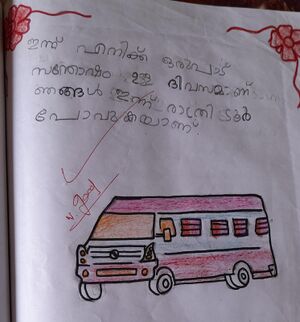 ഇന്ന് എനിക്ക് ഒരുപാട്
സന്തോഷം ഉള്ള ദിവസമാണ്
ഞങ്ങൾ ഇന്ന് രാത്രി ടൂർ
പോവുകയാണ്.
v. good